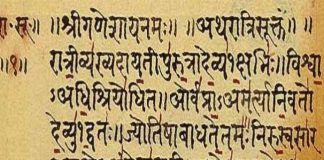 रा॰ सू॰ ॥श्रीगणेशायनमः॥ ॥अथरात्रिसूक्तं॥
॥१॥ रात्रीव्यख्यदायतीपुरुत्रादेव्य१क्षभिः॥विश्वा
ऽअधिश्रियोधित॥ओर्वप्राऽअमर्त्यानिवतो
देव्यु१द्वतः॥ज्योतिषाबाधतेतमः॥निरुस्वसार